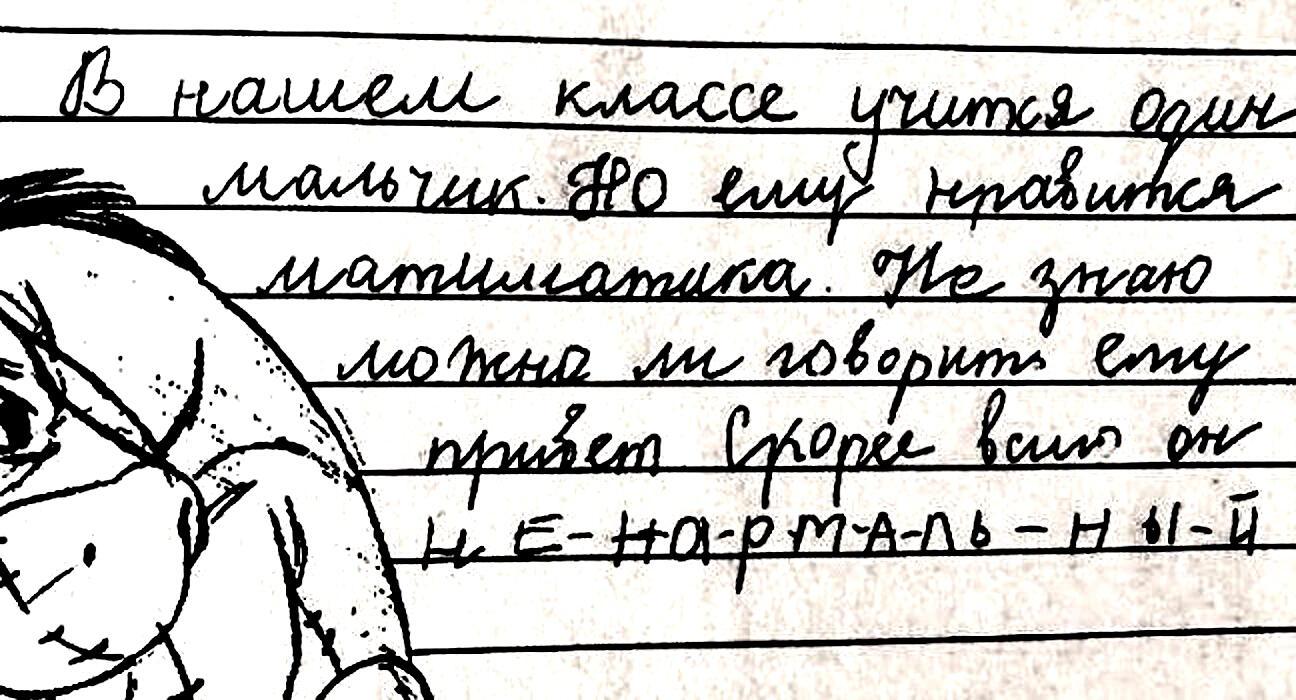 В нашем классе учится один
мальчик. НО ему нравится
матиматика. Не знаю
можно ли говорить ему
привет Скорее всиго он
Н Е-НА-РМ-А-ЛЬ-Н Ы-Й